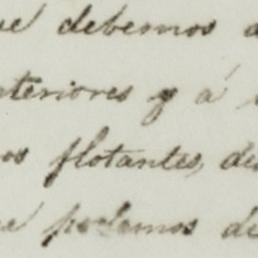 ue debemos a
teriores y á
os flotantes, de
e podemos de